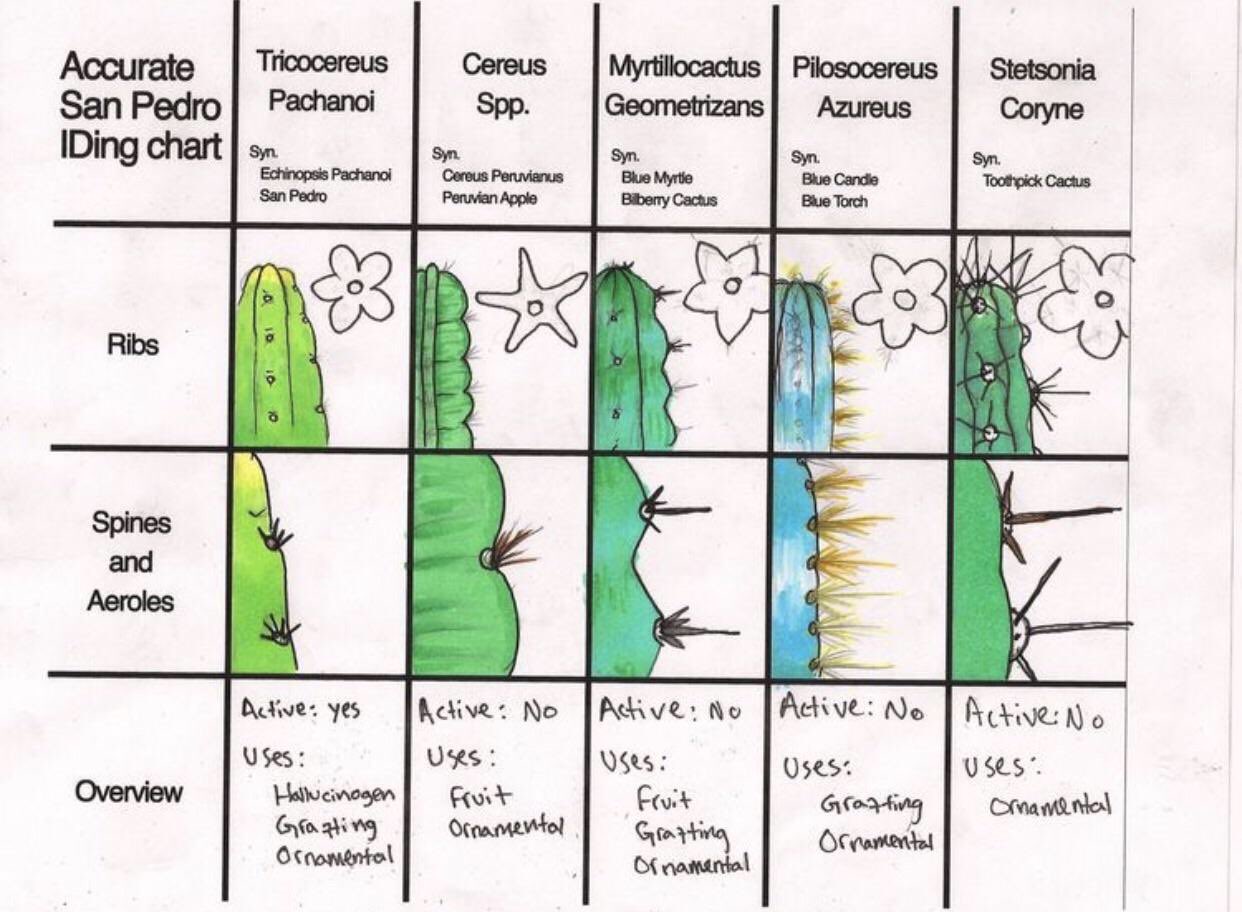 Accurate
San Pedro
IDing chart
Tricocereus
Pachanoi
Syn.
Echinopsis Pachanoi
San Pedro
Cereus
Spp.
Syn.
Cereus Peruvianus
Peruvian Apple
Myrtillocactus
Geometrizans
Syn.
Blue Myrtle
Bilberry Cactus
Pilosocereus
Azureus
Syn.
Blue Candle
Blue Torch
Stetsonia
Coryne
Syn.
Toothpick Cactus
Ribs
Spines
and
Aeroles
Overview
Active: yes
Uses:
Hallucinogen
Grafting
Ornamental
Active: No
Uses:
Fruit
Ornamental
Active: No
Uses:
Fruit
Grafting
Ornamental
Active: No
Uses:
Grafting
Ornamental
Active: No
Uses:
Ornamental